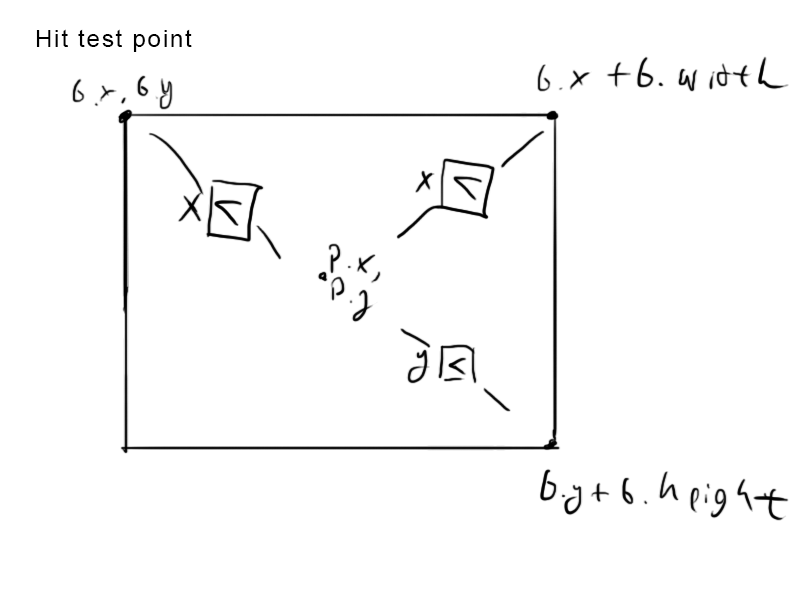 Hit test point
b.x, b.y
b.x + b.width
x <
x <
p.x,
p.y
y ≤
b.y + b.height